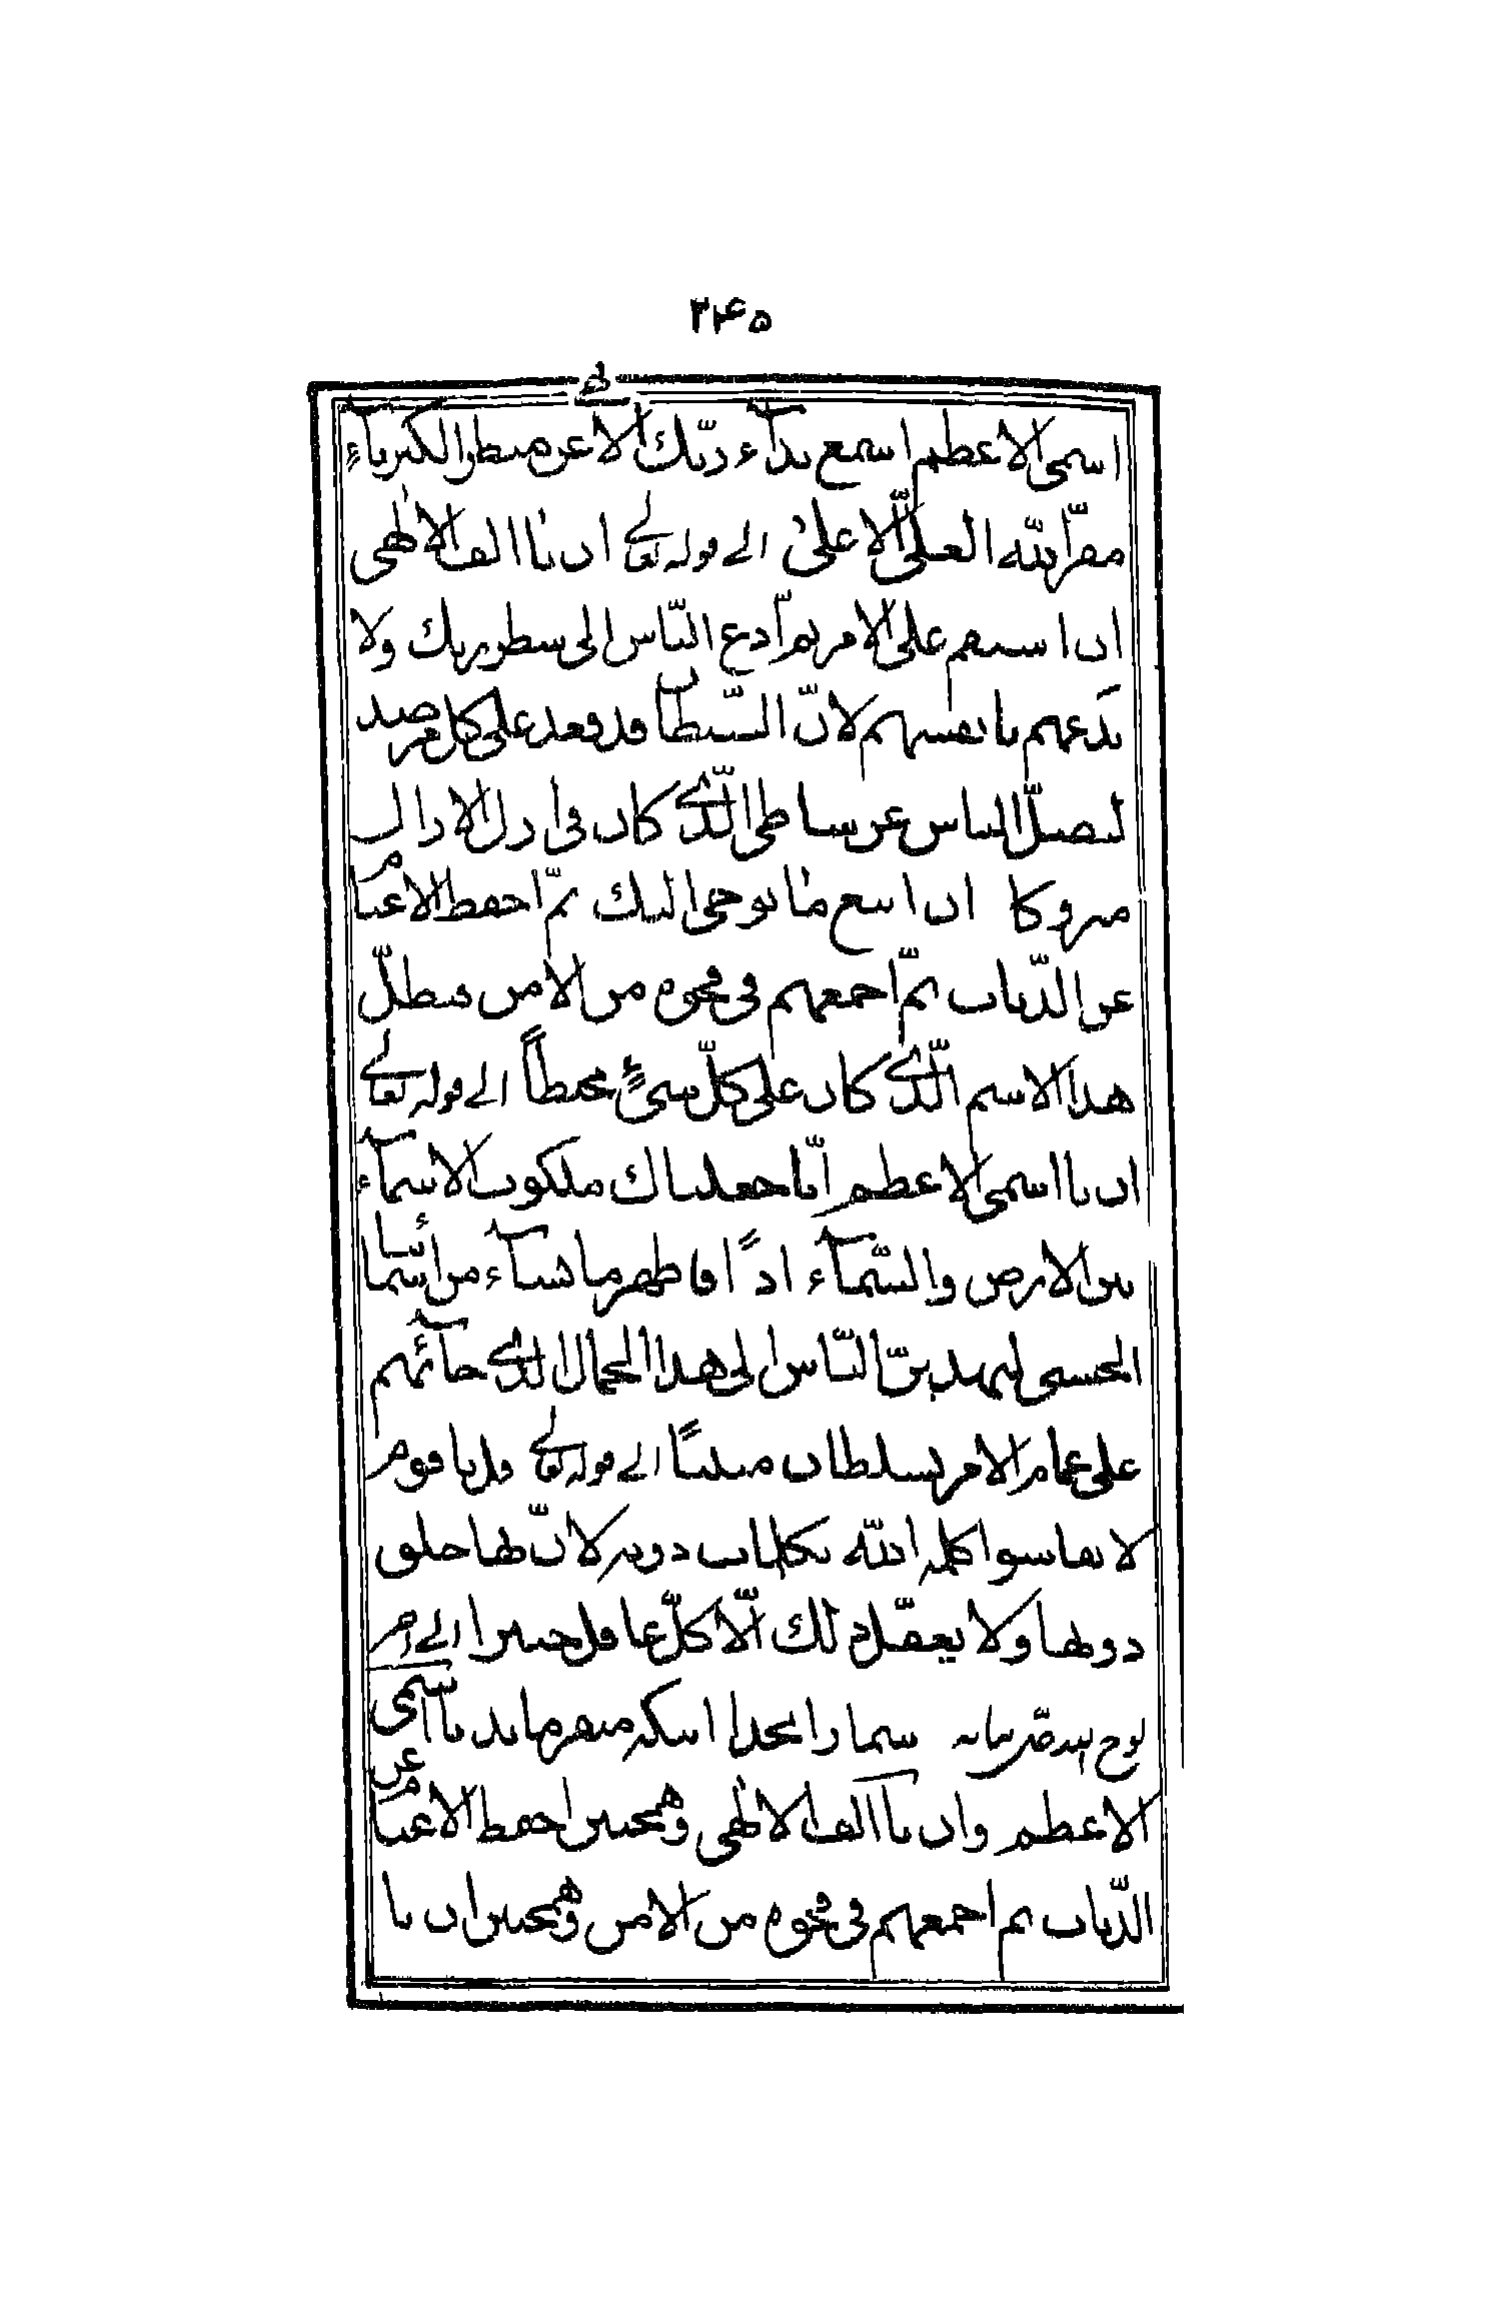 ٢۴۵
اسمی الاعظم اسمع ندآء ربّک الاعن منظر الکبریآء
مقرّ الله العلیّ الاعلیٰ الے قوله تعالے ان یٰا الف الالٰهی
ان استقم علی الامر ثمّ ادع النّاس الی شطر ربک ولا
تدعهم بانفسهم لانّ الشّیطان قد قعد علی کل مرصد
لیضلّ الناس عن شاطی الّذی کان فی ازل الازال
مبروکا ان اسمع مٰا یوحی الیک ثمّ احفظ الاغنام
عن الذّیاب ثمّ اجمعهم فی فجوه من الامن فی ظلّ
هذا الاسم الّذی کان علی کلّ شیءٍ محیطاً الے قوله تعالے
ان یا اسمی الاعظم انّا جعلناک ملکوت الاسمآء
بین الارض والسّمآء اذاً فاظهر ما شآء من اسمائنا
الحسنی لیهدینّ النّاس الی هذا الجمال الّذی
علی غمام الامر بسلطان مبیناً الے قوله تعالے قل یا قوم
لا تقاسوا کلمة الله بکلمات دونه لانّ بها خلق
دونها ولا یعقل ذلک الّا کلّ عاقل خبیرا الے آخر
لوح شما را بخدا اینکه میفرماید یا اسمی
الاعظم وان یا الف الالٰهی وهمچنین احفظ الاغنام عن
الذّیاب ثم اجمعهم فی فجوه من الامن وهمچنین ان یا